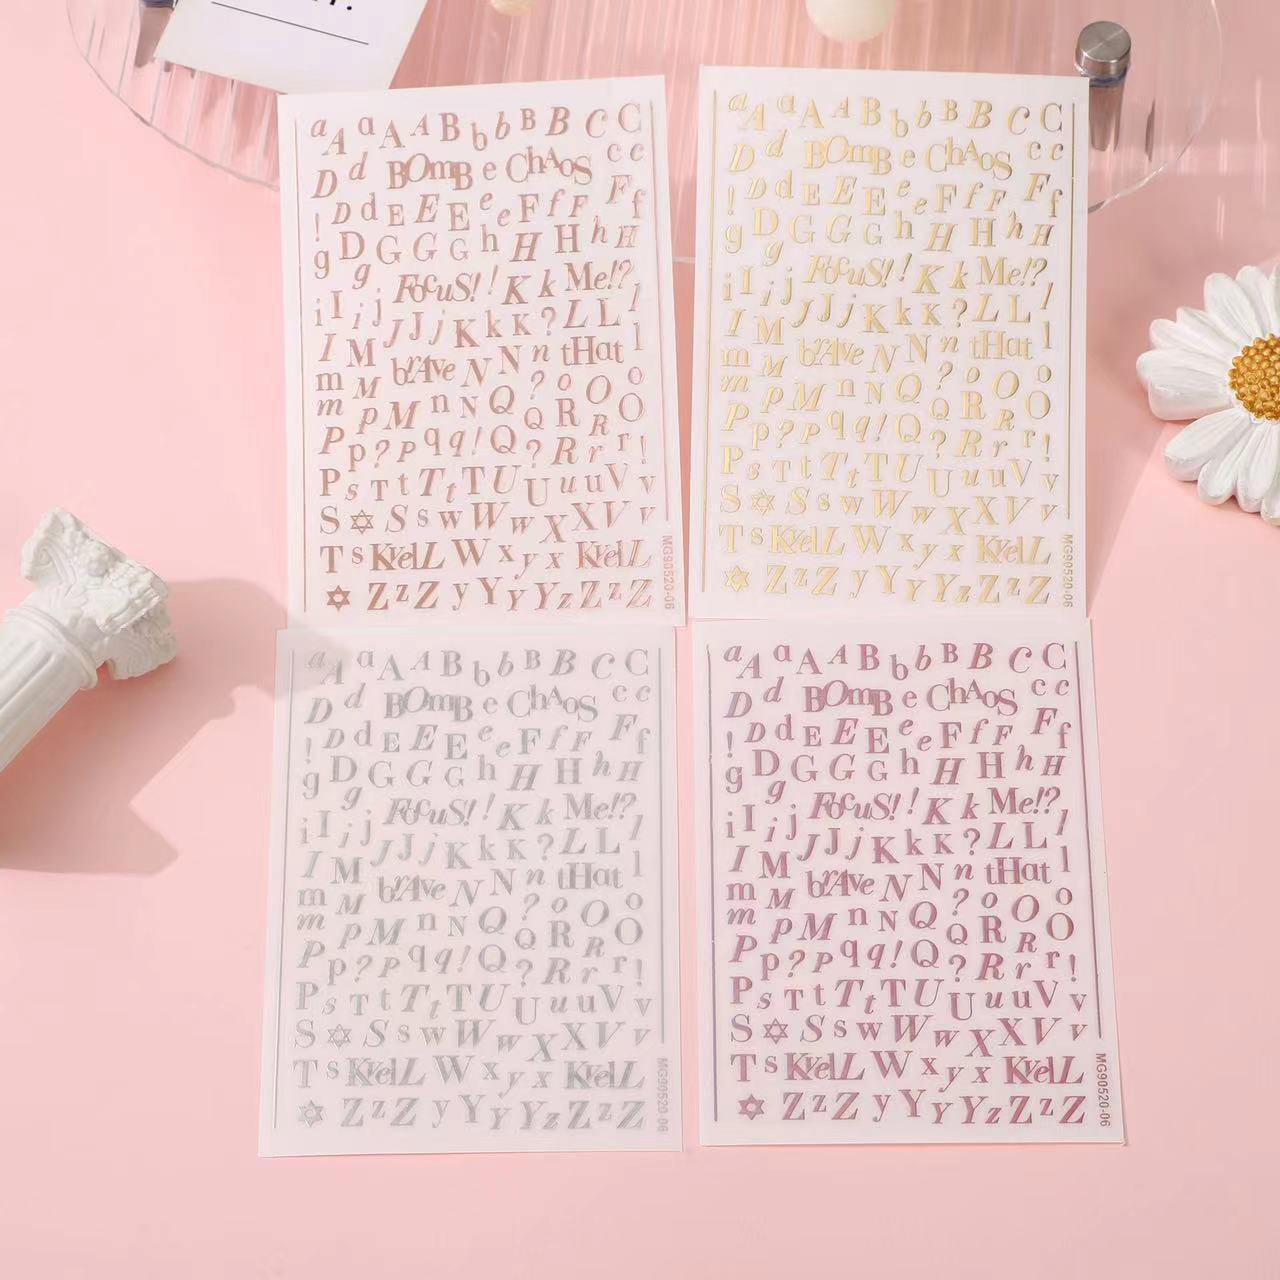 a A a A A B b b B B C C
D d BOmB e ChAOS c c
! D d E E E e e F f F F f
g D G G G h H H h H
g FocuS! ! K k Me!?
i I i j J J j K k K ? L L l
I M brAve N N n tHat l
m M n N Q ? o O o
m p M Q R R O
P p ? P q q ! Q ? R r r !
P s T t T t T U U u u V v
S S s w W w X X V v
T s KvelL W x y x KvelL
Z z Z y Y Y Y z Z z Z
MG90520-06
a A a A A B b b B B C C
D d BOmB e ChAOS c c
! D d E E E e e F f F F f
g D G G G h H H h H
g FocuS! ! K k Me!?
i I i j J J j K k K ? L L l
I M brAve N N n tHat l
m M n N Q ? o O o
m p M Q R R O
P p ? P q q ! Q ? R r r !
P s T t T t T U U u u V v
S S s w W w X X V v
T s KvelL W x y x KvelL
Z z Z y Y Y Y z Z z Z
MG90520-06
a A a A A B b b B B C C
D d BOmB e ChAOS c c
! D d E E E e e F f F F f
g D G G G h H H h H
g FocuS! ! K k Me!?
i I i j J J j K k K ? L L l
I M brAve N N n tHat l
m M n N Q ? o O o
m p M Q R R O
P p ? P q q ! Q ? R r r !
P s T t T t T U U u u V v
S S s w W w X X V v
T s KvelL W x y x KvelL
Z z Z y Y Y Y z Z z Z
MG90520-06
a A a A A B b b B B C C
D d BOmB e ChAOS c c
! D d E E E e e F f F F f
g D G G G h H H h H
g FocuS! ! K k Me!?
i I i j J J j K k K ? L L l
I M brAve N N n tHat l
m M n N Q ? o O o
m p M Q R R O
P p ? P q q ! Q ? R r r !
P s T t T t T U U u u V v
S S s w W w X X V v
T s KvelL W x y x KvelL
Z z Z y Y Y Y z Z z Z
MG90520-06